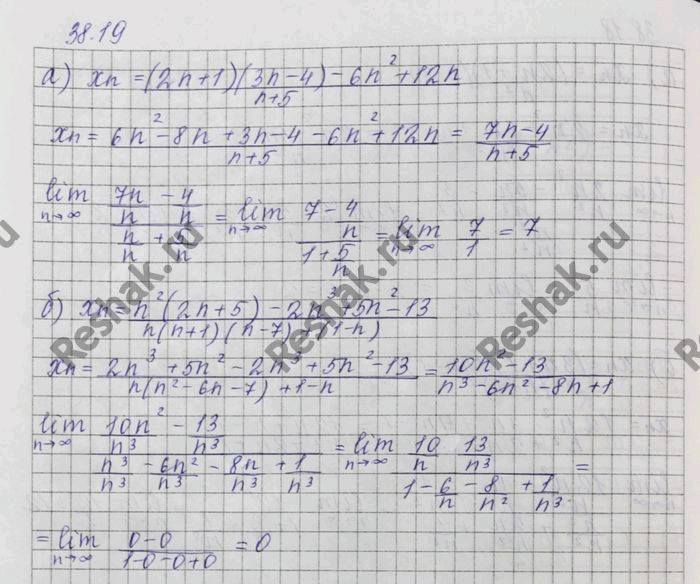 38.19
а) xn = (2n+1)(3n-4) - 6n² + 12n / n+5
xn = 6n² - 8n + 3n - 4 - 6n² + 12n / n+5 = 7n-4 / n+5
lim n→∞ (7n/n - 4/n) / (n/n + 5/n) = lim n→∞ (7 - 4/n) / (1 + 5/n) = lim n→∞ 7/1 = 7
б) xn = n²(2n+5) - 2n³ + 5n² - 13 / n(n+1)(n-7) + (1-n)
xn = 2n³ + 5n² - 2n³ + 5n² - 13 / n(n² - 6n - 7) + 1 - n = 10n² - 13 / n³ - 6n² - 8n + 1
lim n→∞ (10n²/n³ - 13/n³) / (n³/n³ - 6n²/n³ - 8n/n³ + 1/n³) = lim n→∞ (10/n 13/n³) / (1 - 6/n - 8/n² + 1/n³) =
= lim n→∞ 0-0 / 1-0-0+0 = 0
Reshak.ru
Reshak.ru
Reshak.ru